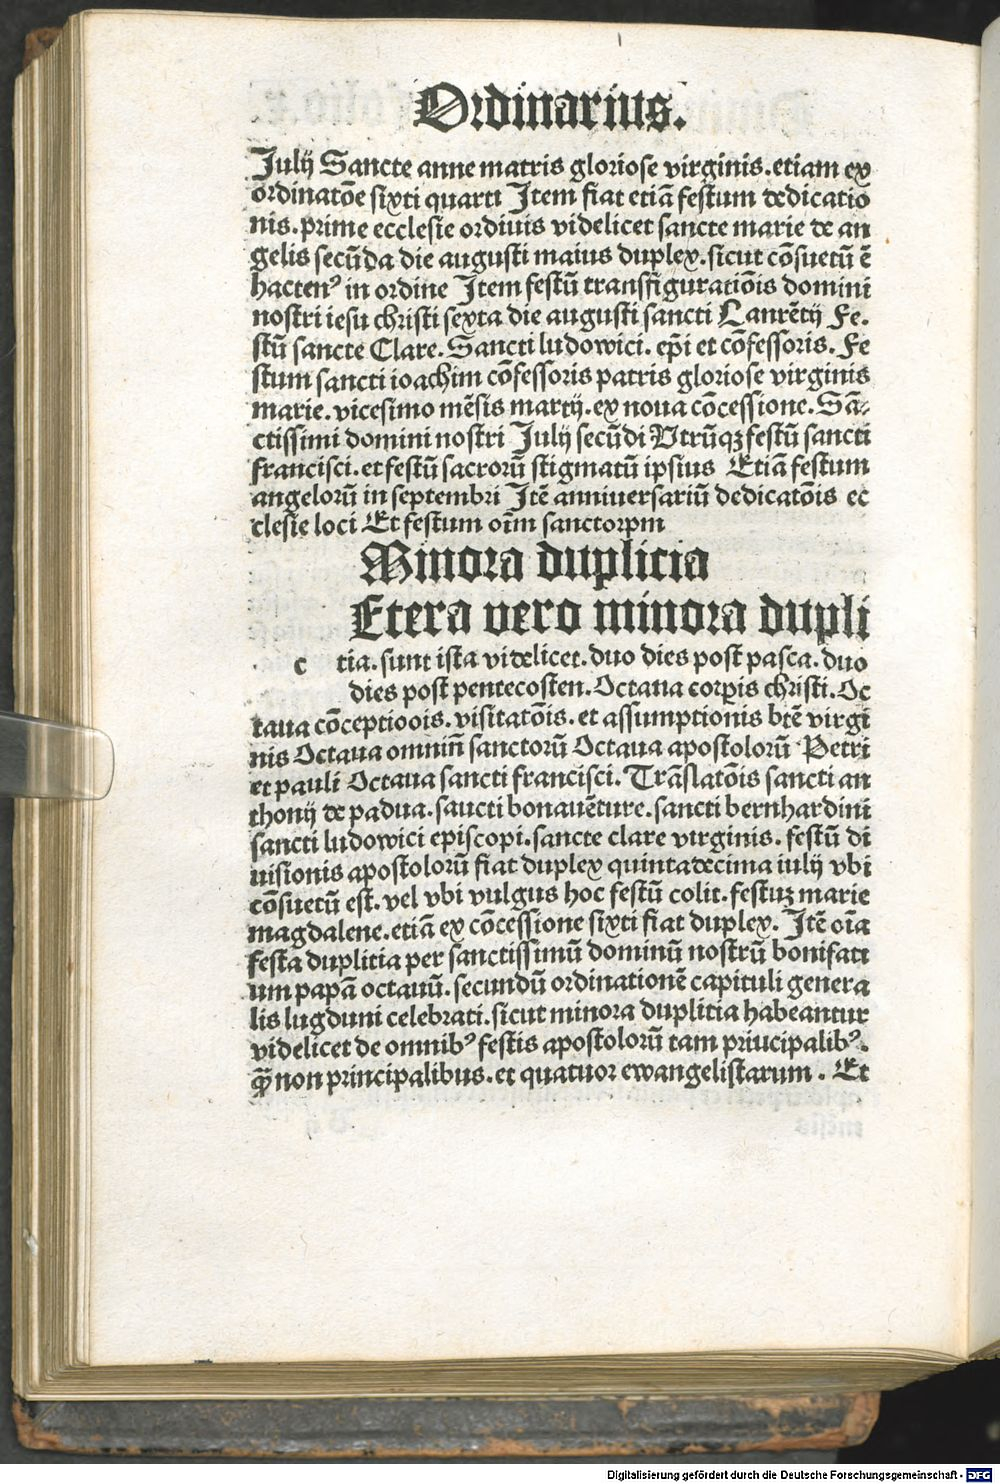 Ordinarius.
Julij Sancte anne matris gloriose virginis. etiam ex
ordinatōe sixti quarti Item fiat etiā festum dedicatio
nis. prime ecclesie ordiuis videlicet sancte marie de an
gelis secūda die augusti maius duplex. sicut cōsuetū ē
hactenꝰ in ordine Item festū transfiguratiōis domini
nostri iesu christi sexta die augusti sancti Laurētij Fe-
stū sancte Clare. Sancti ludowici. ep̄i et cōfessoris. Fe
stum sancti ioachim cōfessoris patris gloriose virginis
marie. vicesimo mēsis martij. ex noua cōcessione. Sā-
ctissimi domini nostri Julij secūdi Vtrūqꝫ festū sancti
francisci. et festū sacrorū stigmatū ipsius Etiā festum
angelorū in septembri Itē anniuersariū dedicatōis ec
clesie loci Et festum oīm sanctorpm
Minora duplicia
Etera vero minora dupli
c tia. sunt ista videlicet. duo dies post pasca. duo
dies post pentecosten. Octaua corpis christi. Oc
taua cōceptioois. visitatōis. et assumptionis btē virgi
nis Octaua omniū sanctorū Octaua apostolorū Petri
et pauli Octaua sancti francisci. Trāslatōis sancti an
thonij de padua. saucti bonauēture. sancti bernhardini
sancti ludowici episcopi. sancte clare virginis. festū di
uisionis apostolorū fiat duplex quintadecima iulij vbi
cōsuetū est. vel vbi vulgus hoc festū colit. festuꝫ marie
magdalene. etiā ex cōcessione sixti fiat duplex. Itē oīa
festa duplitia per sanctissimū dominū nostrū bonifati
um papā octauū. secundū ordinationē capituli genera
lis lugduni celebrati. sicut minora duplitia habeantur
videlicet de omnibꝰ festis apostolorū tam priucipalibꝰ.
q̄ non principalibus. et quatuor ewangelistarum. Et
Digitalisierung gefördert durch die Deutsche Forschungsgemeinschaft - DFG